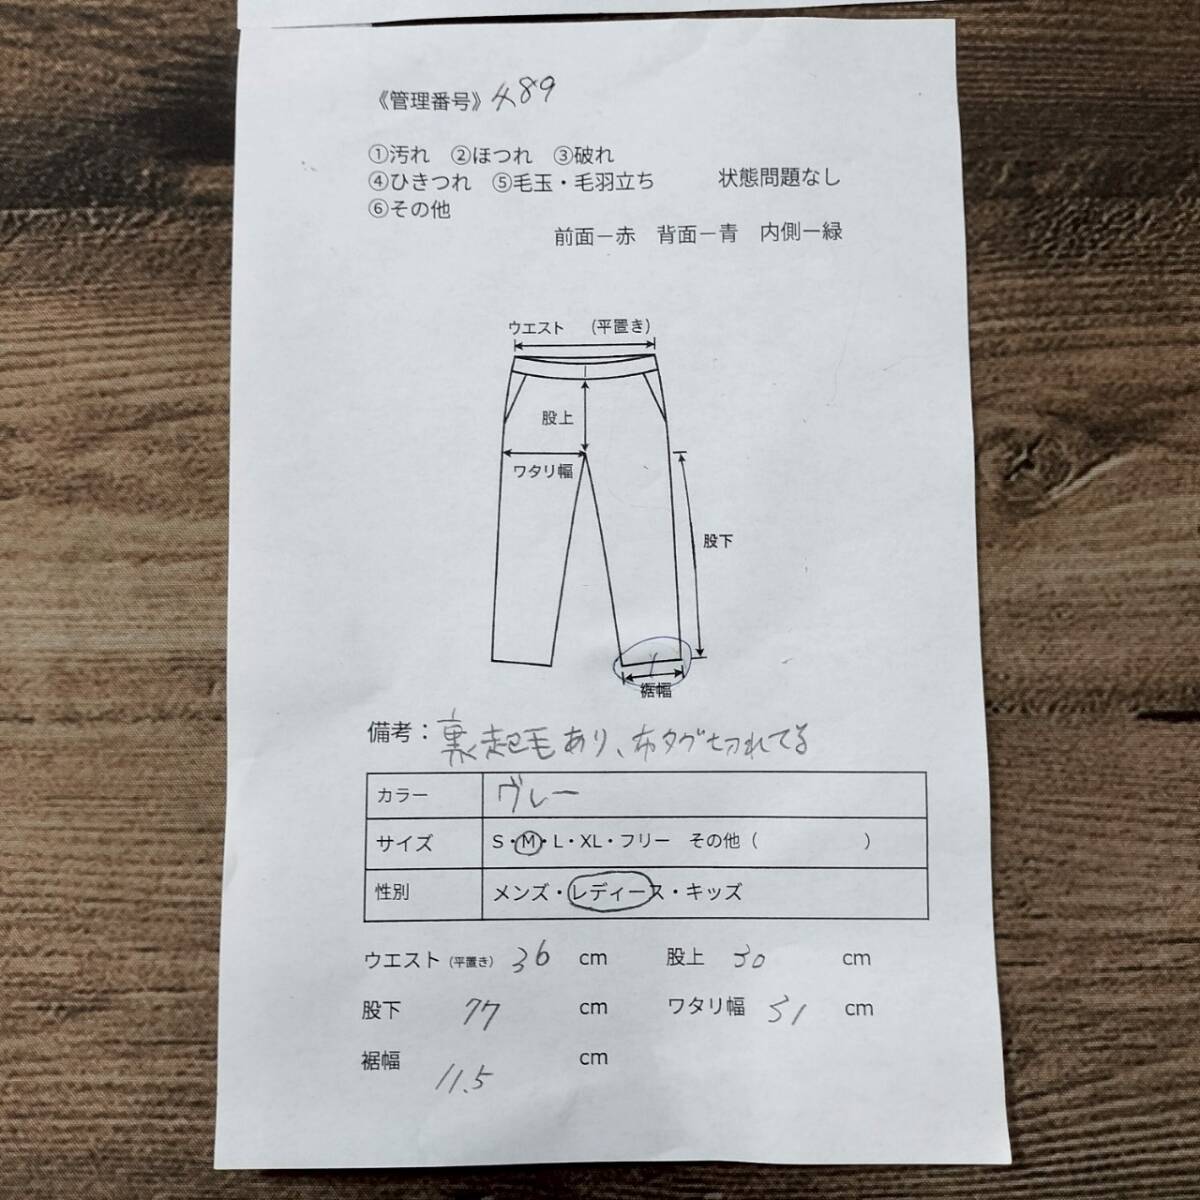 《管理番号》489
①汚れ ②ほつれ ③破れ
④ひきつれ ⑤毛玉・毛羽立ち 状態問題なし
⑥その他
前面ー赤 背面ー青 内側ー緑
ウエスト (平置き)
股上
ワタリ幅
股下
1
裾幅
備考：裏起毛あり、布タグ切れてる
カラー グレー
サイズ S・M・L・XL・フリー その他（ ）
性別 メンズ・レディース・キッズ
ウエスト(平置き) 36 cm 股上 30 cm
股下 77 cm ワタリ幅 31 cm
裾幅 11.5 cm